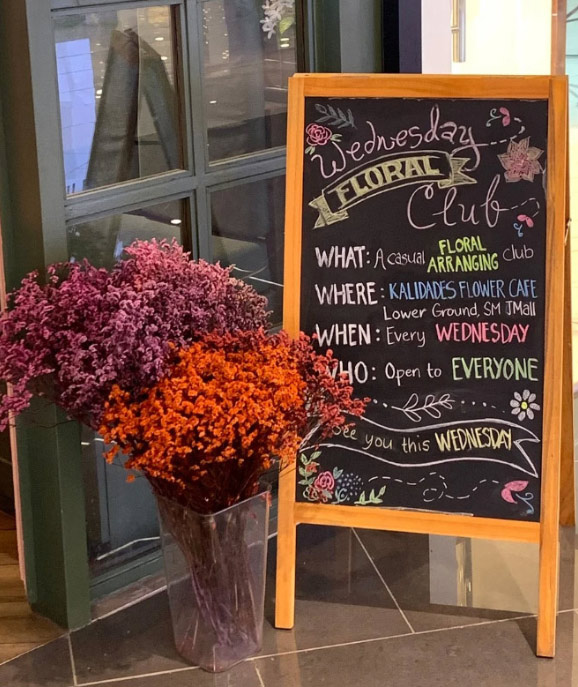 Wednesday
FLORAL
Club
WHAT: A casual FLORAL ARRANGING club
WHERE: KALIDADES FLOWER CAFE
Lower Ground, SM JMall
WHEN: Every WEDNESDAY
WHO: Open to EVERYONE
See you this WEDNESDAY